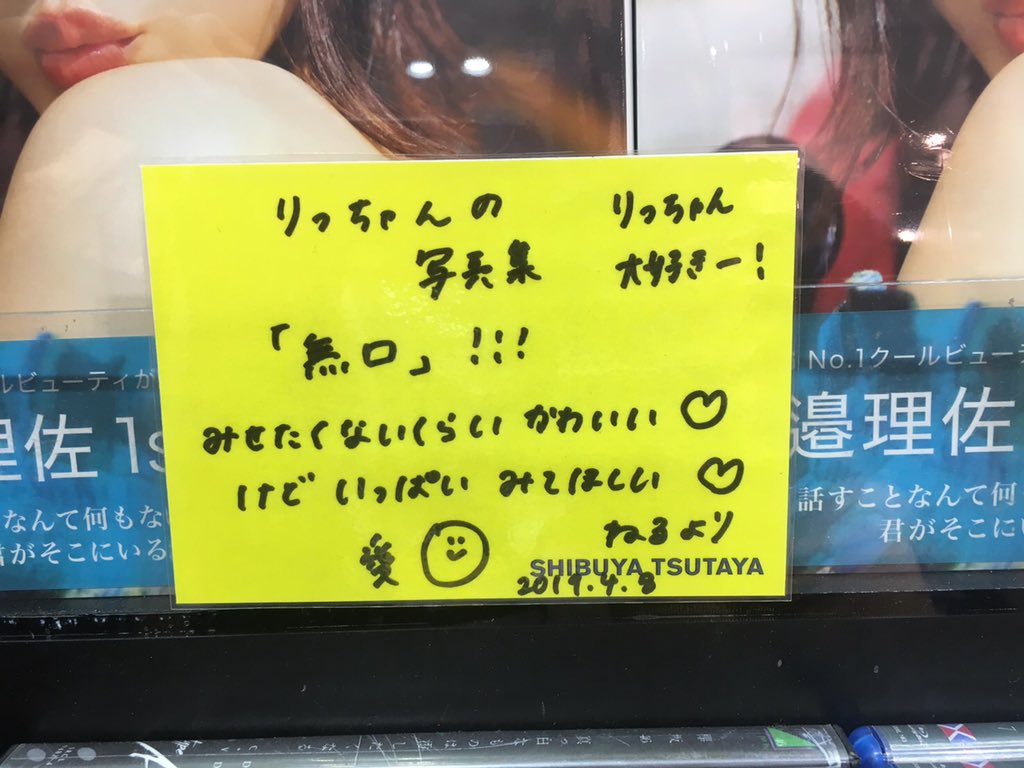 りっちゃんの
写真集
りっちゃん
大好きー!
「無口」!!!
みせたくないくらい かわいい♡
けど いっぱい みてほしい♡
愛
ねるより
SHIBUYA TSUTAYA
2019.4.8
ルビューティが
理佐 1s
なんて何もな
君がそこにいる
No.1クールビューテ
邉理佐
話すことなんて何
君がそこに